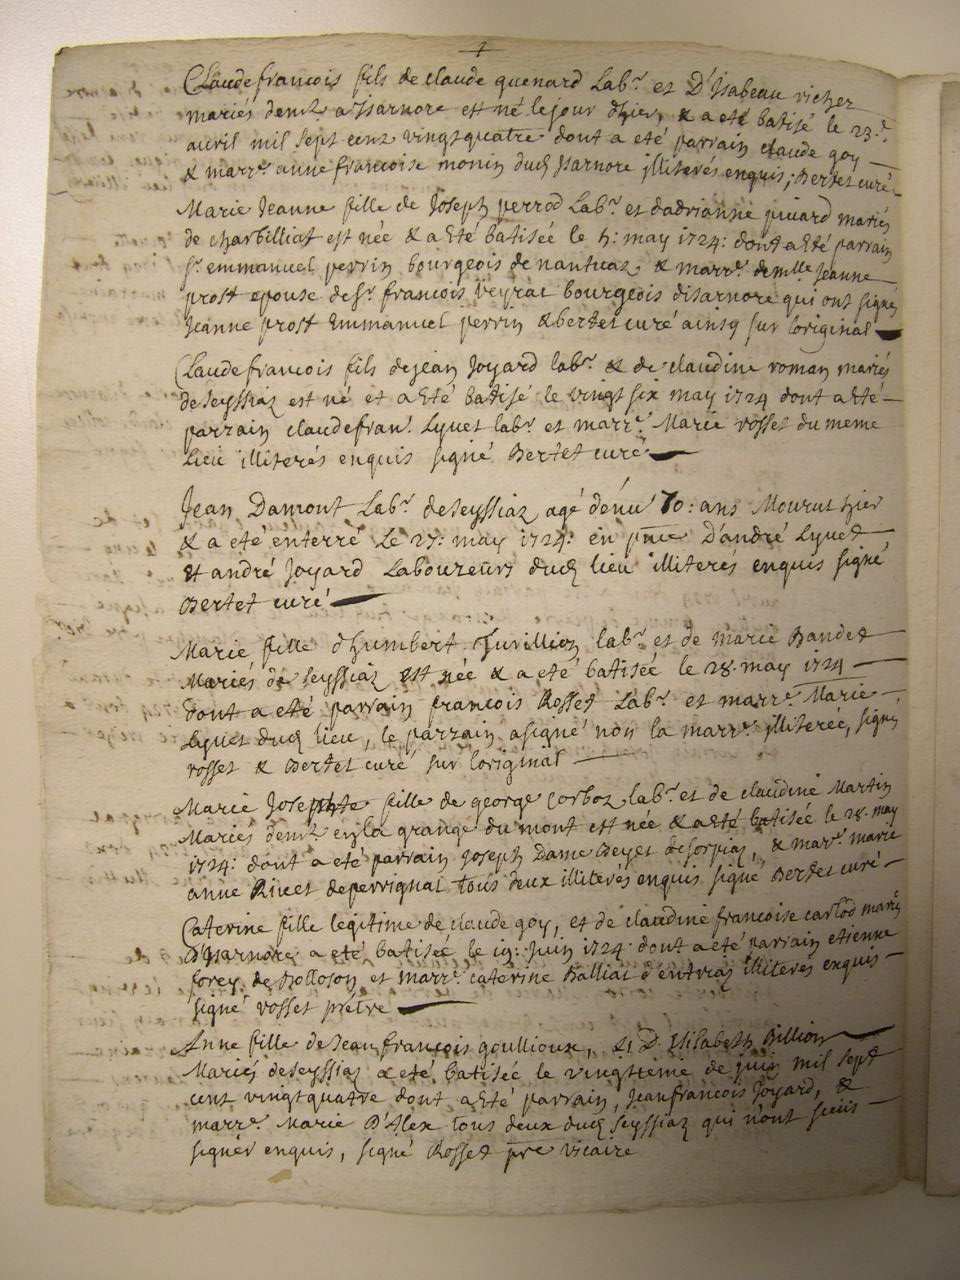 Claude francois fils de claude quenard Labr. et D'Isabeau richer
mariés demt. a Isarnore est né le jour d'hier, & a eté batisé le 23.e
auril mil sept cent vingtquatre dont a eté parrain claude goy
& marre. anne francoise monin dud Isarnore illiterés enquis; Bertet curé
Marie Jeanne fille de Joseph perrod Labr. et dadrianne piuard mariés
de charbilliat est née & a Eté batisée le h: may 1724: dont a Eté parrain
sr. emmanuel perrin bourgeois de nantuaz & marre. demlle Jeanne
prost epouse de sr. francois Veyrat bourgeois disarnore qui ont signé
Jeanne prost Emmanuel perrin & bertet curé ainsy sur loriginal
Claude francois fils de jean Joyard labr. & de claudine roman mariés
de seyssiaz est né et a Eté batisé le vingt six may 1724 dont a Eté
parrain claude fran. Lyuet labr. et marre. Marie rosset du meme
Lieu illiterés enquis signé Bertet curé
Jean Damont Labr. de seyssiaz agé d'enu. 70: ans Mourut hier
& a eté enterré Le 27: may 1724: en pnce D'andré Lyuet
et andré Joyard Laboureurs dud lieu illiterés enquis signé
Bertet curé
Marie fille d'humbert Turillion labr. et de marie Bandet
Mariés de seyssiaz est née & a eté batisée le 28. may 1724
dont a eté parrain francois Rosset Labr. et marre. Marie
Lyuet dud lieu, le parrain a signé non la marre. illiterée, signé
rosset & Bertet curé sur loriginal
Marie Josephte fille de george corboz labr. et de claudine Martin
Mariés demt. en la grange du mont est née & a Eté batisée le 28. may
1724: dont a eté parrain Joseph Dame Beyet de sorpiaz, & marre. marie
anne Riuet de perrignat tous deux illiterés enquis signé Bertet curé
Caterine fille legitime de claude goy, et de claudine francoise carlod mariés
D'Isarnore a eté batisée le 19: Juin 1724: dont a eté parrain etienne
forey de Bolloson et marre. caterine Balliat d'entrias illiterés enquis
signé rosset prétre
Anne fille de Jean francois goullioux, et D. Elisabeth Billion
Mariés de seyssiaz a eté batisée le vingtieme de juin mil sept
cent vingtquatre dont a Eté parrain, Jean francois Joyard, &
marre. Marie D'Alex tous deux dud seyssiaz qui n'ont sceus
signer enquis, signé Rosset pre vicaire